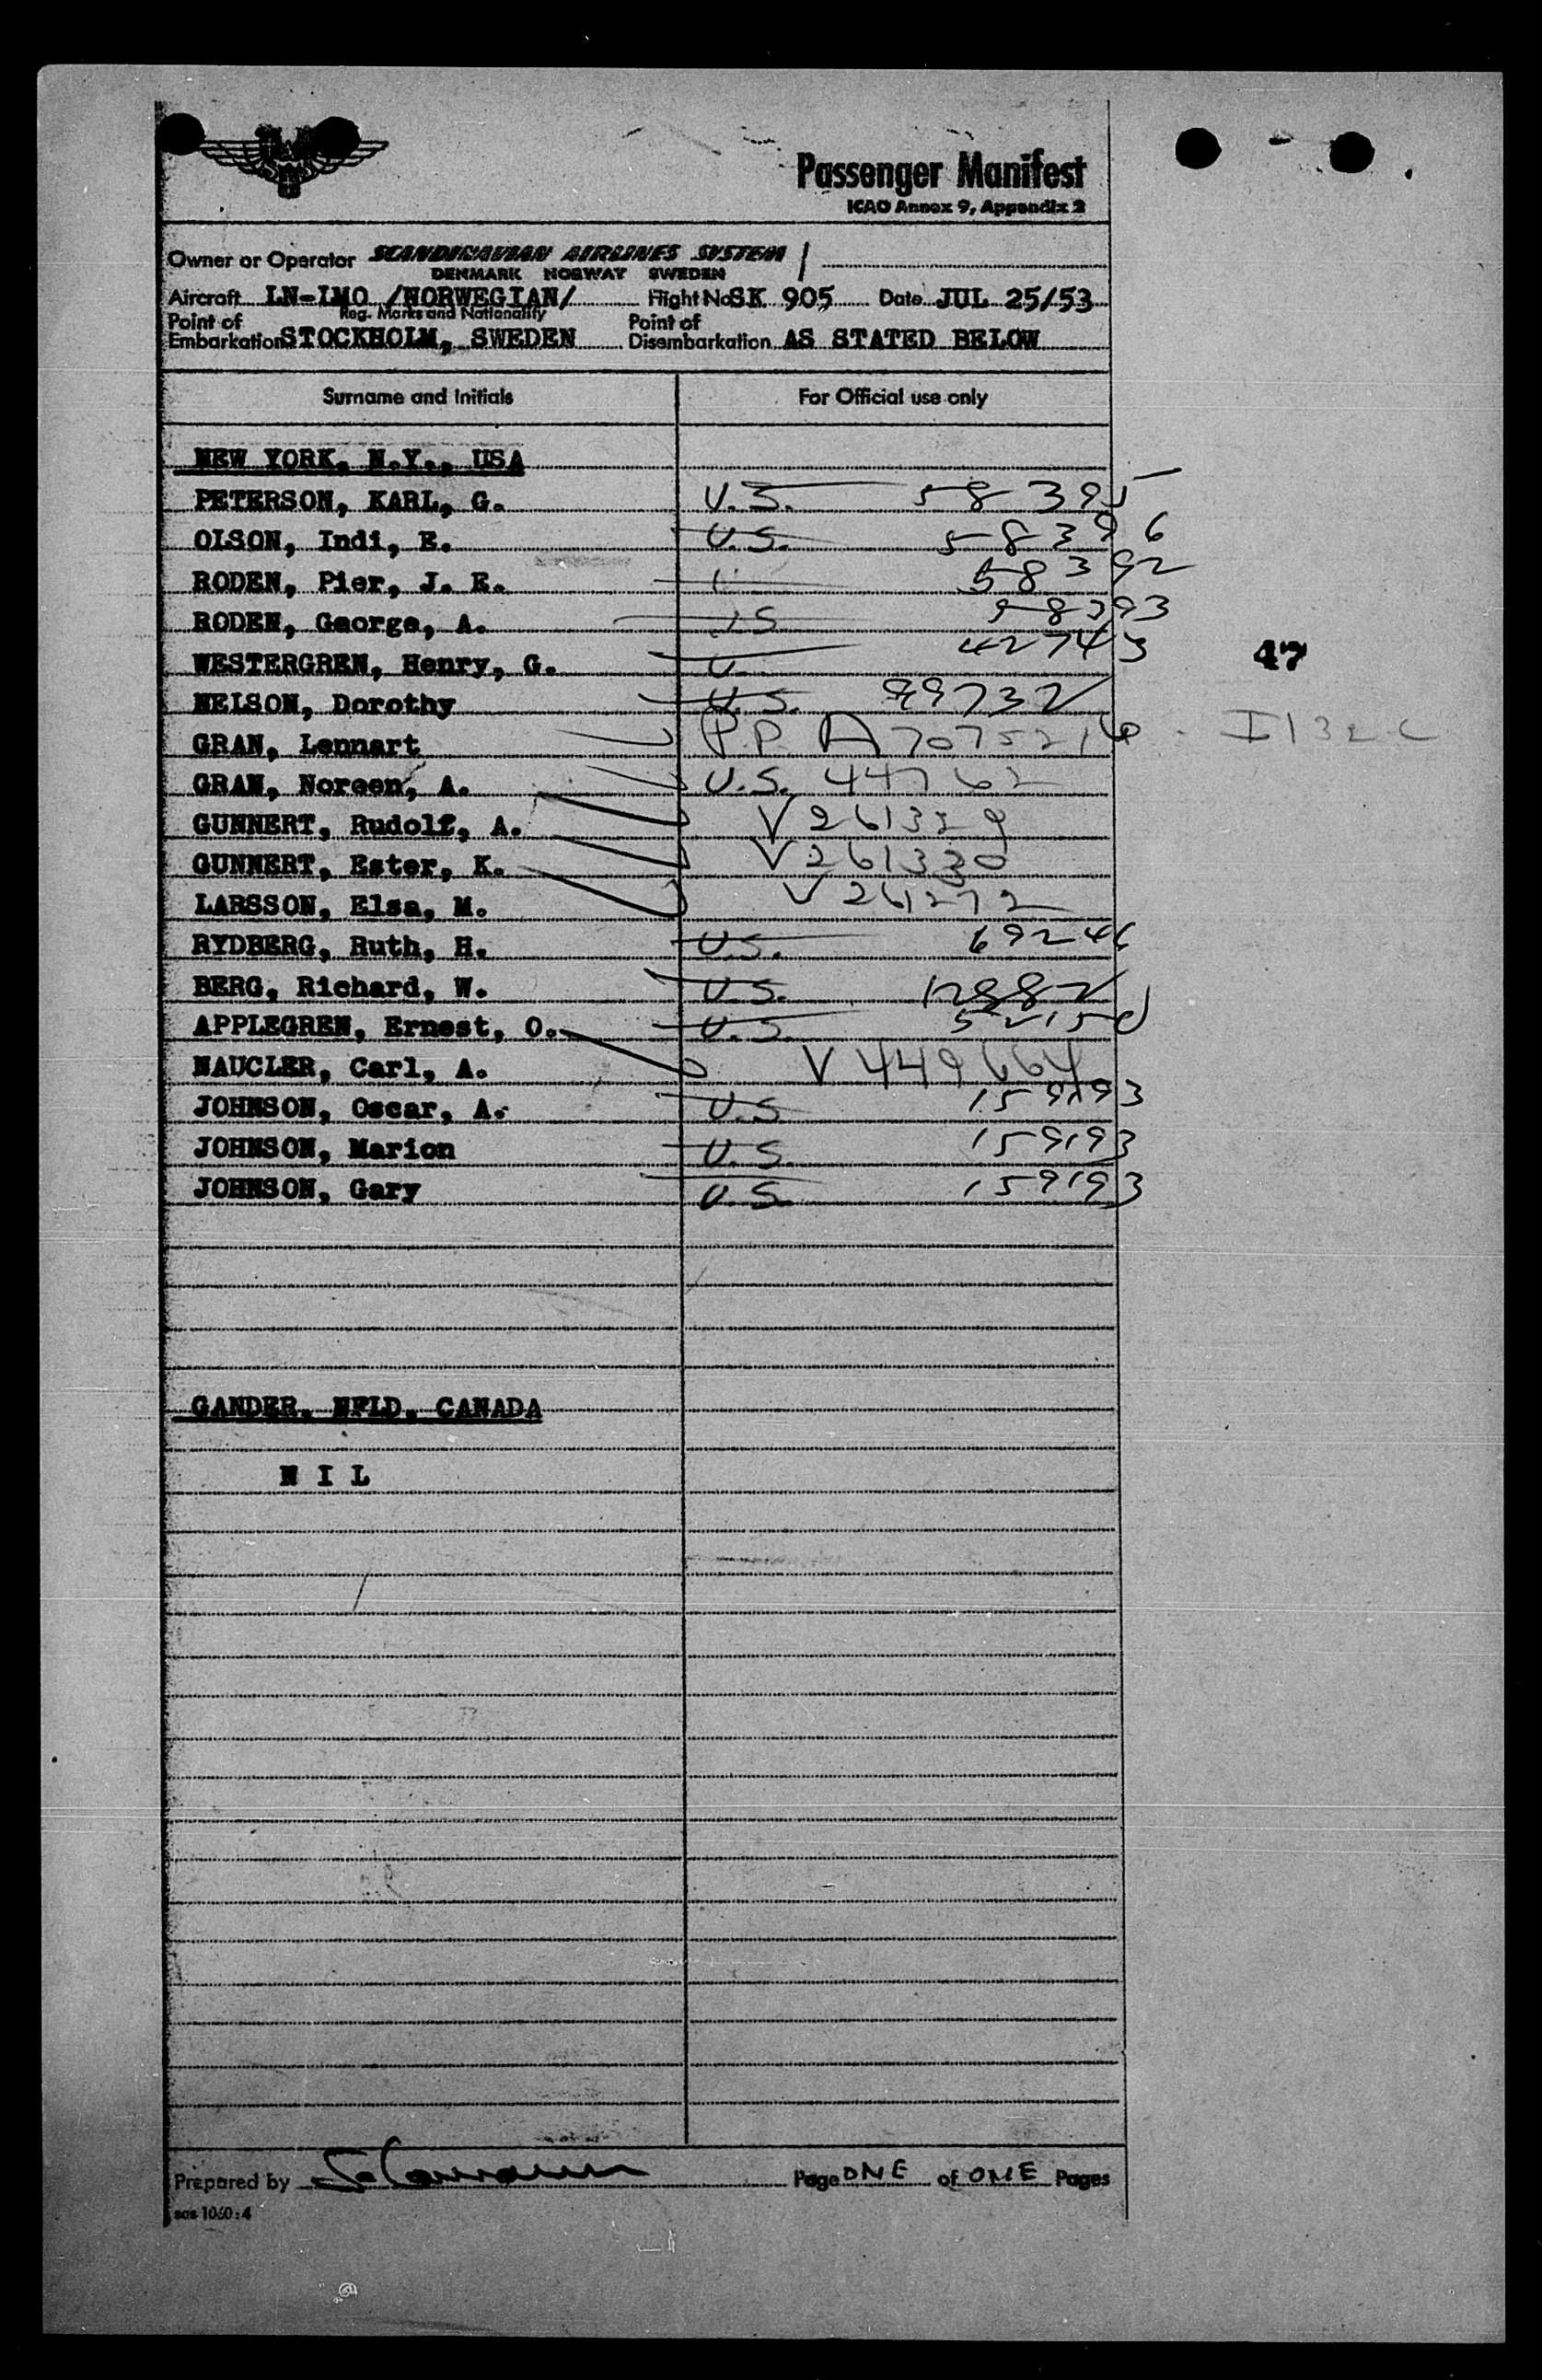 Passenger Manifest
ICAO Annex 9, Appendix 2
Owner or Operator SCANDINAVIAN AIRLINES SYSTEM
DENMARK NORWAY SWEDEN
Aircraft LN-LMO /NORWEGIAN/ Flight No SK 905 Date JUL 25/53
Reg. Marks and Nationality
Point of Embarkation STOCKHOLM, SWEDEN Point of Disembarkation AS STATED BELOW
Surname and Initials For Official use only
NEW YORK, N.Y., USA
PETERSON, KARL, G. U.S. 58395
OLSON, Indi, E. U.S. 58396
RODEN, Pier, J. E. 58392
RODEN, George, A. US 58393
WESTERGREN, Henry, G. U. 42743
47
NELSON, Dorothy U.S. 99732
GRAN, Lennart P.P. A7075216
GRAN, Noreen, A. U.S. 44762
GUNNERT, Rudolf, A. V 261329
GUNNERT, Ester, K. V 261330
LARSSON, Elsa, M. V 261272
RYDBERG, Ruth, H. U.S. 69246
BERG, Richard, W. U.S. 12882
APPLEGREN, Ernest, O. U.S. 52150
NAUCLER, Carl, A. V 449664
JOHNSON, Oscar, A. U.S. 159193
JOHNSON, Marion U.S. 159193
JOHNSON, Gary U.S. 159193
GANDER, NFLD, CANADA
N I L
Prepared by Page ONE of ONE Pages
sas 1060:4